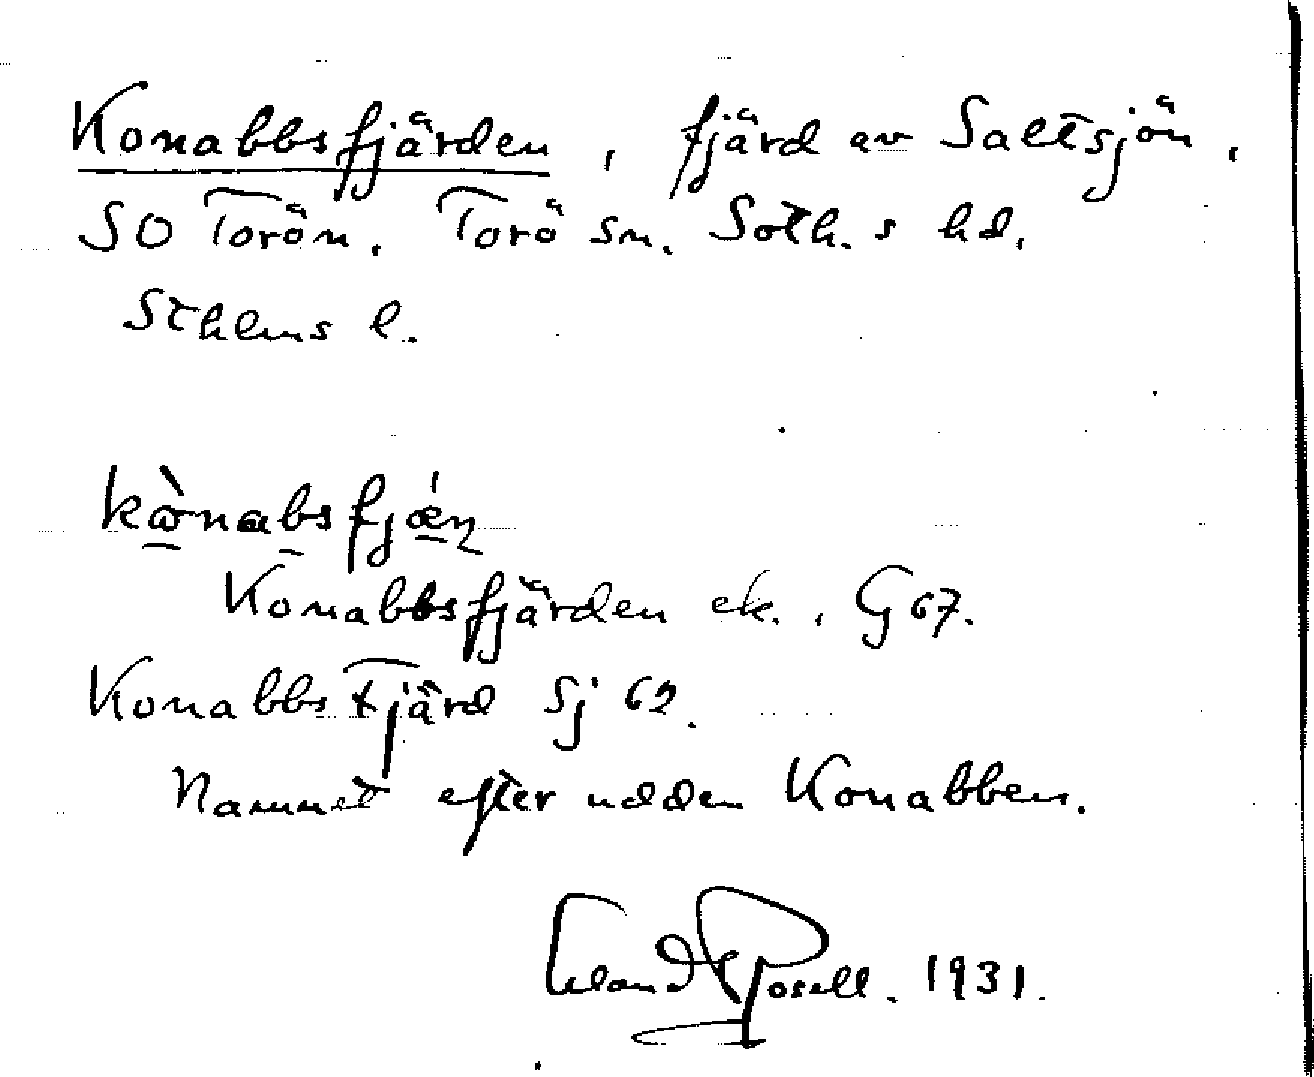 Konabbsfjärden, fjärd av Saltsjön,
SO Torön. Torö sn. Soth. s hd.
Sthlms l.
kò̱nabsfjǽṇ
Konabbsfjärden ek., G 67.
Konabbs Fjärd Sj 62.
Namnet efter udden Konabben.
Erland Rosell. 1931.